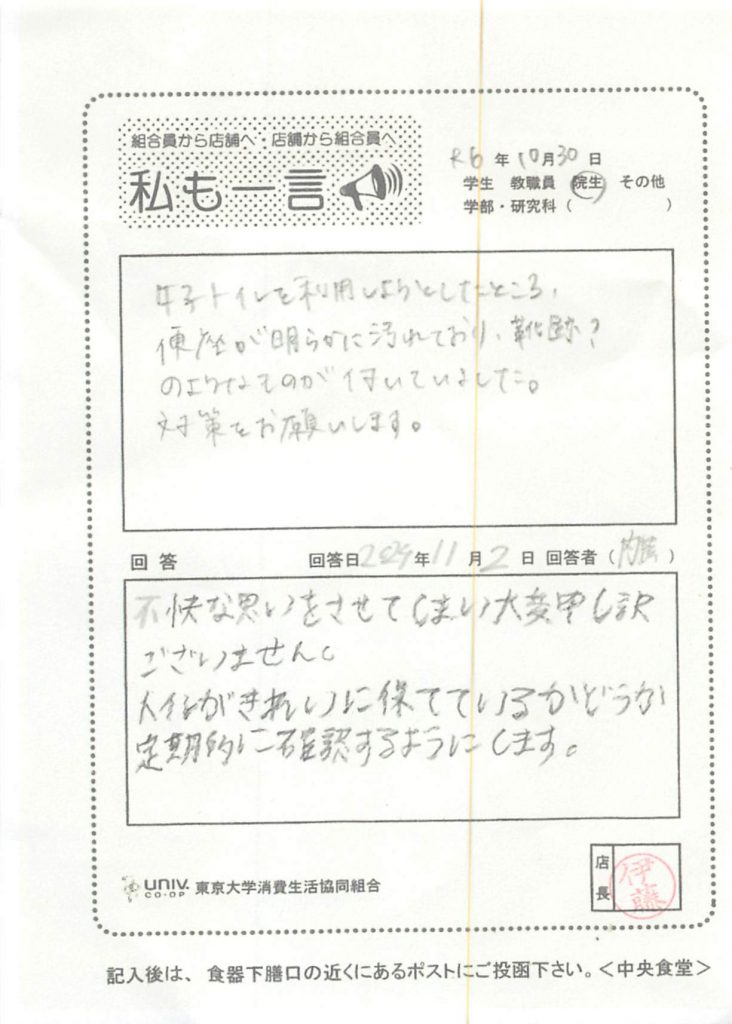 組合員から店舗へ・店舗から組合員へ
私も一言
R6年10月30日
学生 教職員 院生 その他
学部・研究科( )
女子トイレを利用しようとしたところ、
便座が明らかに汚れており、靴跡?
のようなものが付いていました。
対策をお願いします。
回答 回答日2024年11月2日 回答者( )
不快な思いをさせてしまい大変申し訳
ございません。
トイレがきれいに保てているかどうか
定期的に確認するようにします。
UNIV. CO-OP 東京大学消費生活協同組合
店長 伊藤
記入後は、食器下膳口の近くにあるポストにご投函下さい。<中央食堂>